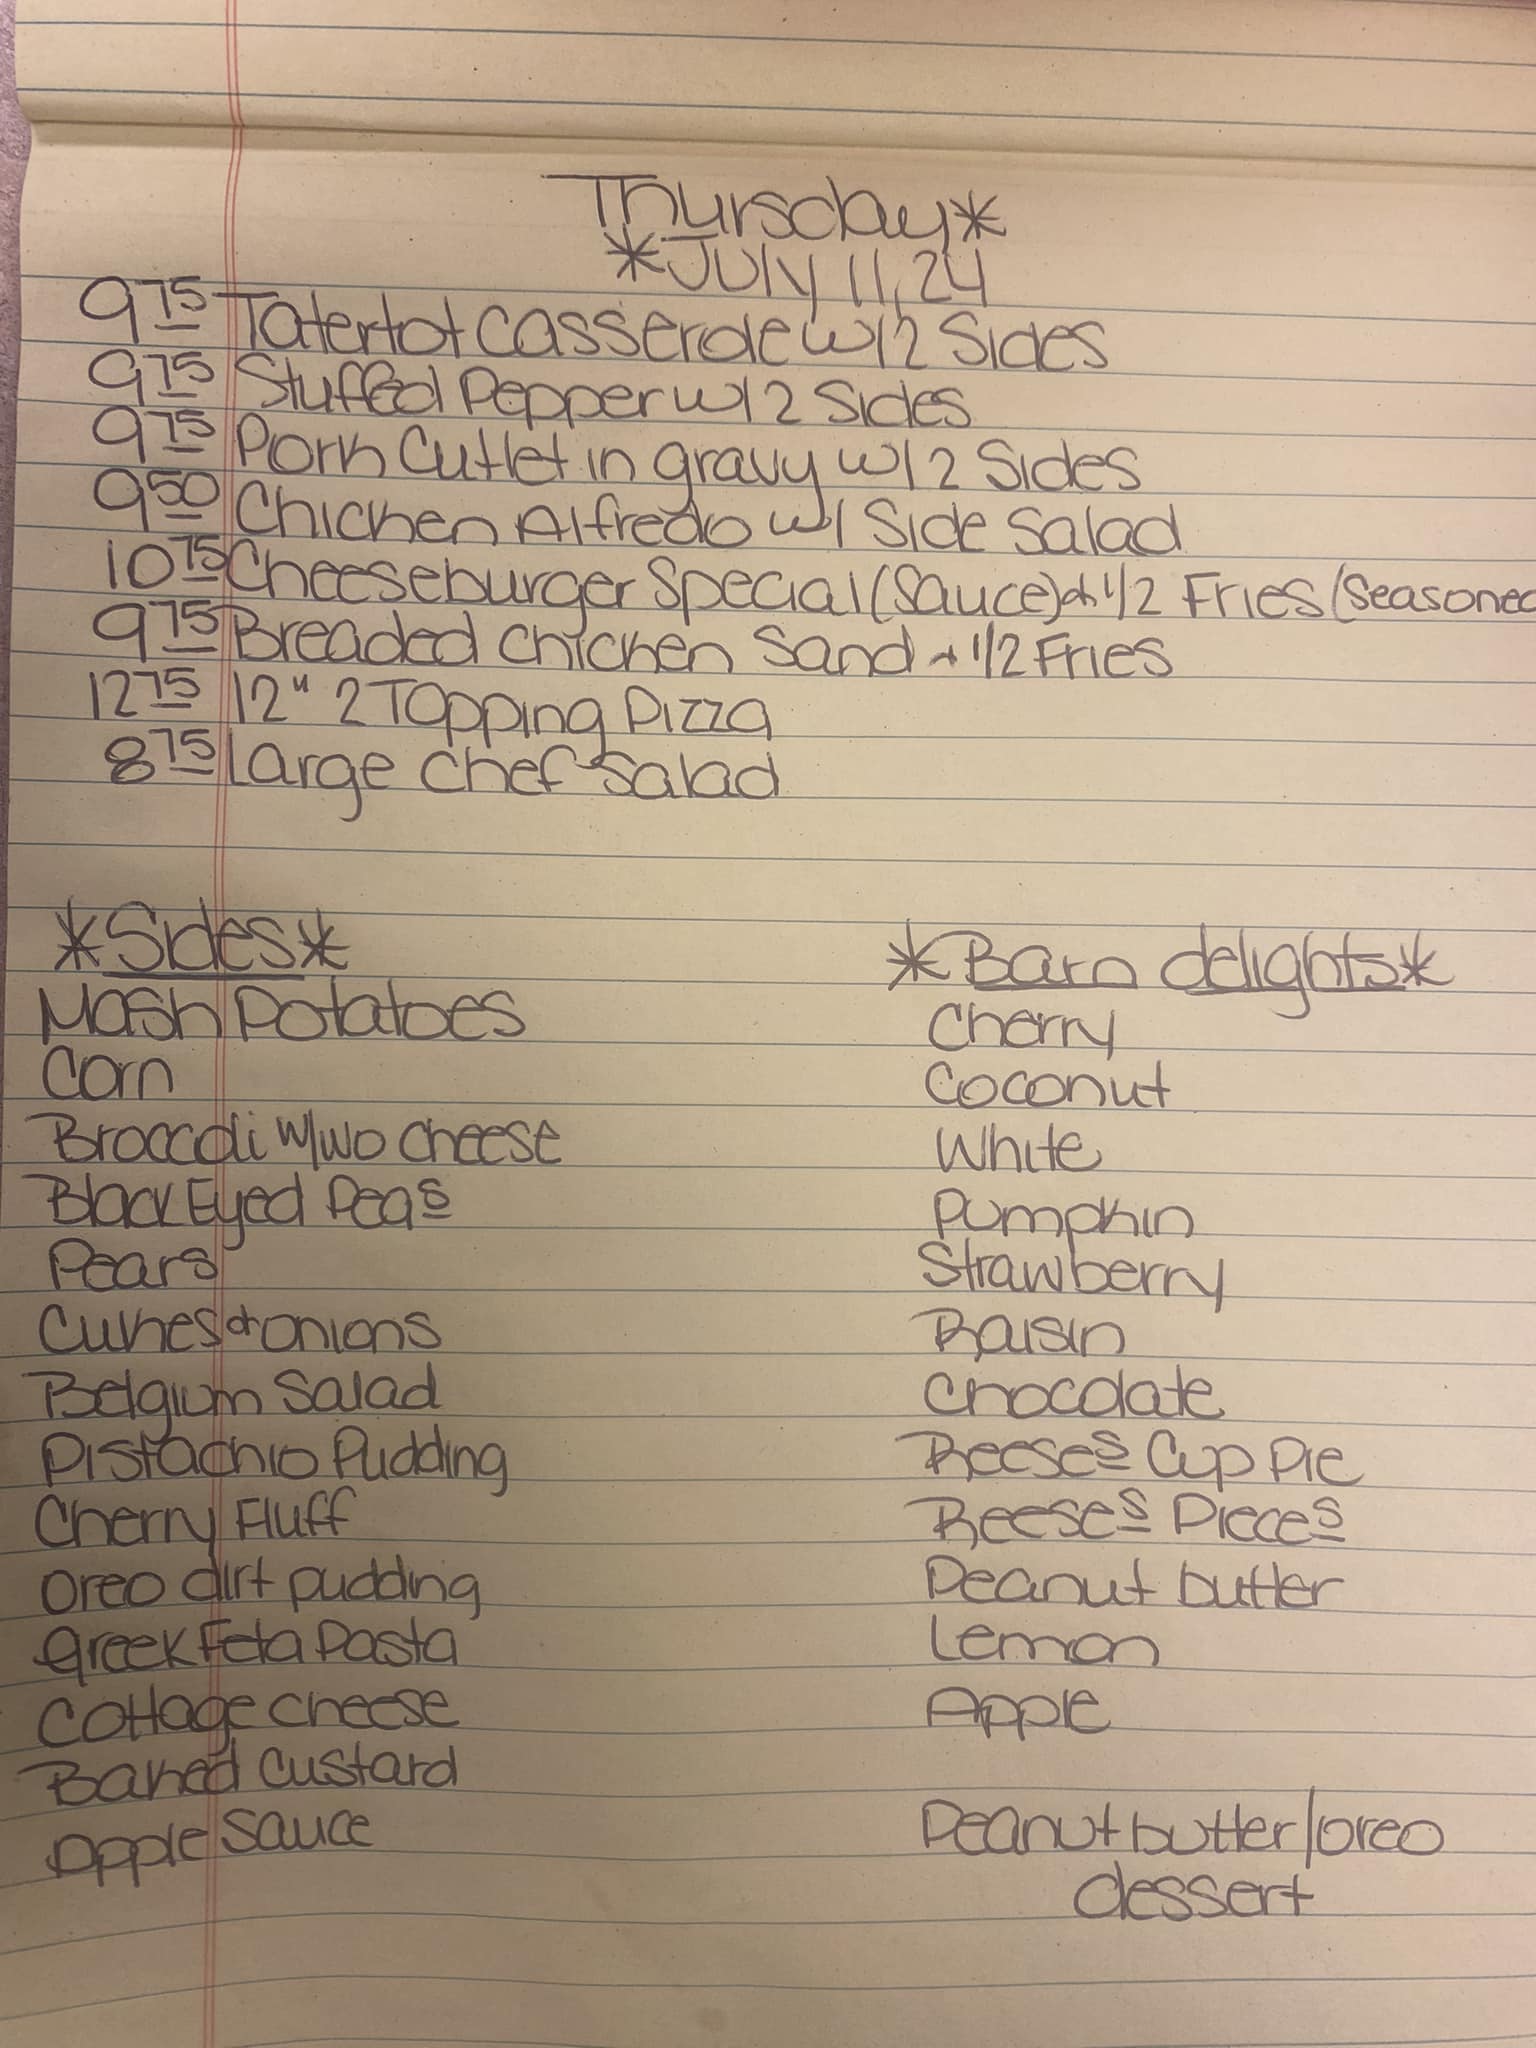 Thursday*
*July 11, 24
9 75 Tatertot Casserole w/ 2 Sides
9 75 Stuffed Pepper w/ 2 Sides
9 75 Pork Cutlet in gravy w/ 2 Sides
9 50 Chicken Alfredo w/ Side Salad
10 75 Cheeseburger Special (Sauce) + 1/2 Fries (Seasoned
9 75 Breaded Chicken Sand + 1/2 Fries
12 75 12" 2 Topping Pizza
8 75 Large Chef Salad
*Sides*
Mash Potatoes
Corn
Broccoli w/wo cheese
Black Eyed Peas
Pears
Cukes + onions
Belgium Salad
Pistachio Pudding
Cherry Fluff
Oreo dirt pudding
Greek Feta Pasta
Cottage cheese
Baked Custard
Apple Sauce
*Barn delights*
Cherry
Coconut
White
Pumpkin
Strawberry
Raisin
Chocolate
Reeses Cup Pie
Reeses Pieces
Peanut butter
Lemon
Apple
Peanut butter/oreo
dessert